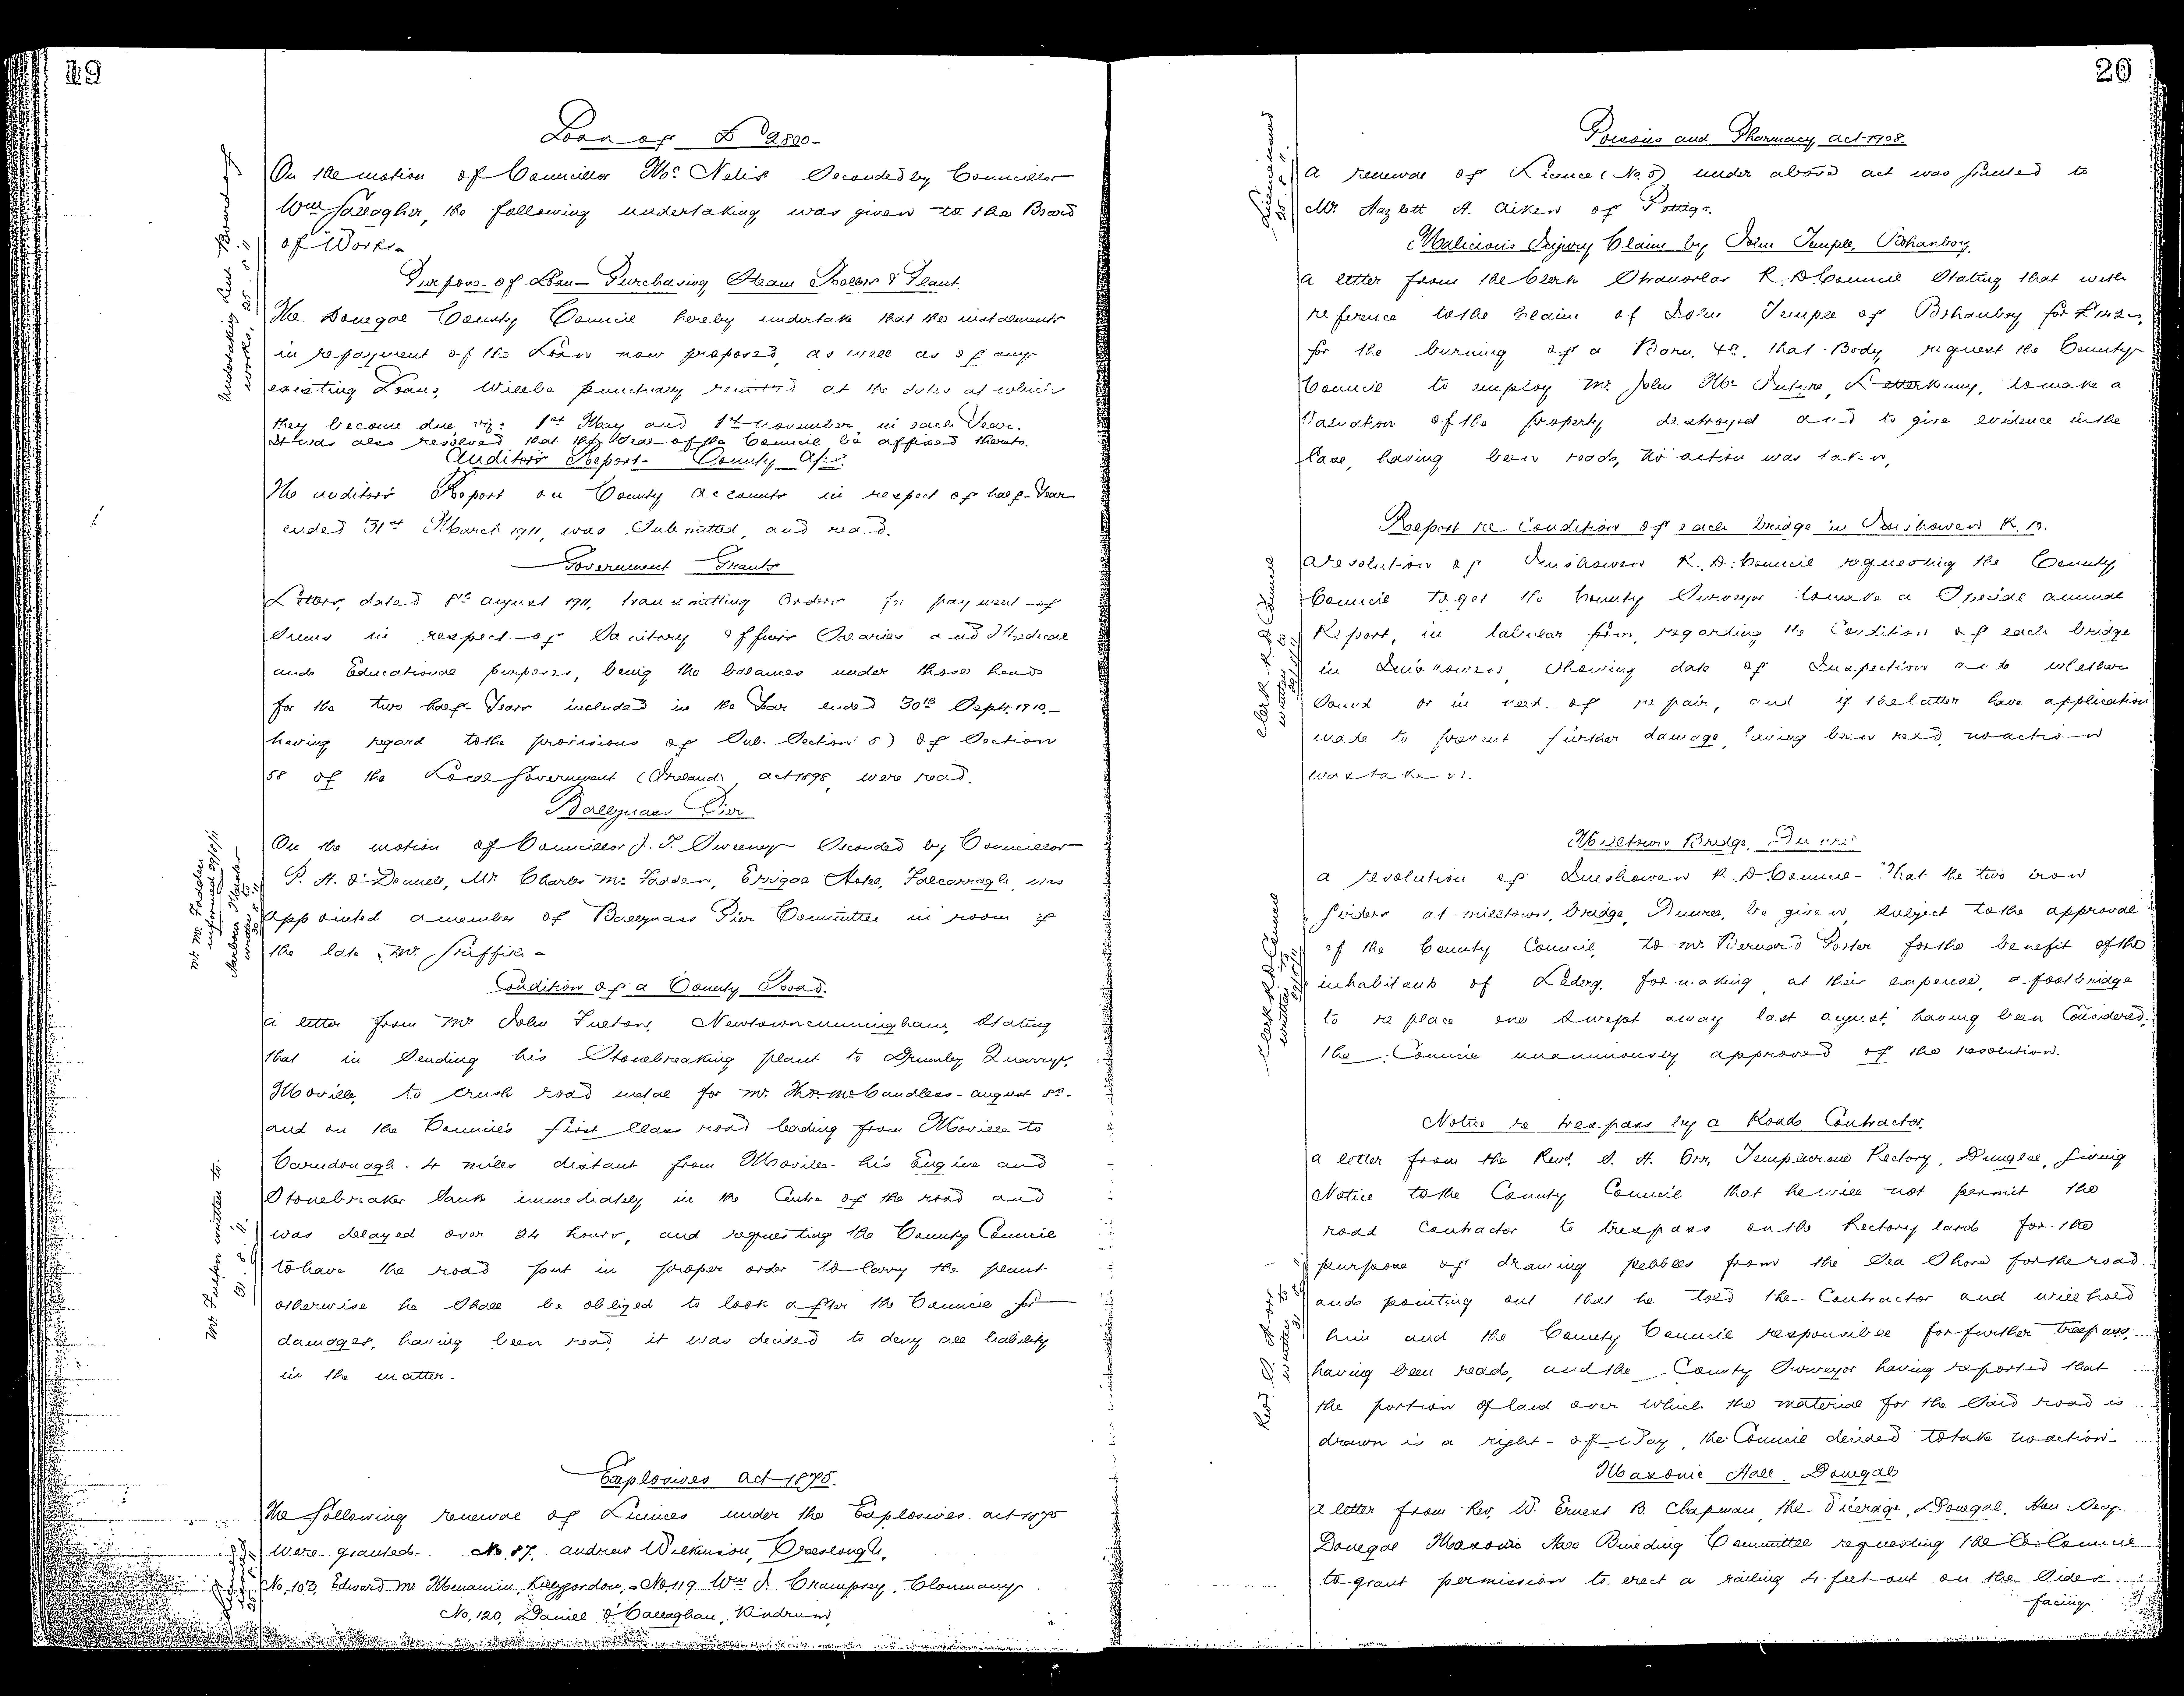 19
Loan of £2800-
On the motion of Councillor Mc Nelis Seconded by Councillor
Wm Gallagher, the following undertaking was given to the Board
of Works-
Purpose of Loan- Purchasing Steam Rollers & Plant.
The Donegal County Council hereby undertake that the instalments
in repayment of the Loan now proposed, as well as of any
existing Loans, will be punctually remitted at the dates at which
they become due, viz: 1st May and 1st November in each Year.
It was also resolved that the Seal of the Council be affixed thereto.
Auditor's Report- County
The auditor's Report on County accounts in respect of half-Year
ended 31st March 1911, was Submitted and read.
Government Grants
Letters, dated 8th august 1911, transmitting Orders for payment of
Sums in respect of Sanitary Officers Salaries and Medical
and Educational purposes, being the balances under those heads
for the two half-Years included in the Year ended 30th Sept. 1910-
having regard to the provisions of Sub. Section 5) of Section
58 of the Local Government (Ireland) act 1898 were read.
Ballyness Pier
On the motion of Councillor J. T. Sweeney Seconded by Councillor
P. H. O'Donnell, Mr Charles Mc Fadden, Errigal Hotel, Falcarragh, was
appointed a member of Ballyness Pier Committee in room of
the late Mr. Griffith-
Condition of a County Road.
a letter from Mr John Fulton, Newtowncunningham, Stating
that in Sending his Stonebreaking plant to Drumley Quarry,
Moville, to crush road metal for Mr. McCandless- august 8th-
and on the Council's first Class road leading from Moville to
Carndonagh. 4 miles distant from Moville- his Engine and
Stonebreaker Sank immediately in the Centre of the road and
was delayed over 24 hours, and requesting the County Council
to have the road put in proper order to Carry the plant
otherwise he Shall be obliged to look after the Council for
damages, having been read, it was decided to deny all liability
in the matter-
Explosives act 1875.
The following renewal of Licences under the Explosives act 1875
were granted. No. 87. andrew Wilkinson, Creeslough,
No, 103, Edward Mc Menamin, Killygordon,- No. 119 Wm J. Crampsey, Clonmany
No, 120, Daniel O'Callaghan, Kindrum,
Undertaking Sent Board of
Works, 25. 8. 11
Mr. Mc Fadden
informed 29/8/11
Harbour Master
Mr. Fulton written to.
31. 8. 11.
20
Poisons and Pharmacy act 1908.
a renewal of Licence (No. 5) under above act was granted to
Mr. Hazlett H. aiken of Pettigo.
Malicious Injury Claim by John Temple,
a letter from the Clerk Stranorlar R. D. Council Stating that with
reference to the Claim of John Temple of for
for the burning of a Barn, &c. that Body request the County
Council to employ Mr. John Letterkenny, to make a
Valuation of the property destroyed and to give evidence in the
Case, having been read, no action was taken,
Report re- Condition of each bridge in Inishowen R. D.
a resolution of Inishowen R. D. Council requesting the County
Council to get the County Surveyor to make a Special annual
Report, in tabular form, regarding the Condition of each bridge
in Inishowen, Showing date of Inspection and whether
Sound or in need of repair, and if the latter have application
made to prevent further damage, having been read, no action
was taken.
Milltown Bridge,
a resolution of Inishowen R. D Council- "That the two iron
Girders at milltown, bridge, be given, Subject to the approval
of the County Council, to Mr Bernard Porter for the benefit of the
inhabitants of for making, at their expense, a footbridge
to replace one Swept away last august," having been Considered,
the Council unanimously approved of the resolution.
Notice re trespass by a Roads Contractor.
a letter from the Revd. S. H. Orr, Templecrone Rectory, Dungloe, Giving
Notice to the County Council that he will not permit the
road Contractor to trespass on the Rectory land for the
purpose of drawing pebbles from the Sea Shore for the road
and pointing out that he told the Contractor and will hold
him and the County Council responsible for further trespass,
having been read, and the County Surveyor having reported that
the portion of land over which the material for the Said road is
drawn is a right-of-Way, the Council decided to take no action-
Masonic Hall. Donegal
a letter from Rev, W. Ernest B. Chapman, the Vicarage, Donegal, Hon: Secy.
Donegal Masonic Hall Building Committee requesting the Co. Council
to grant permission to erect a railing 4 feet out on the Sides
facing
Clerk R. D Council
written to
29/8/11
Clerk R D Council
written to
29/8/11
Rev. S. H. Orr
written to